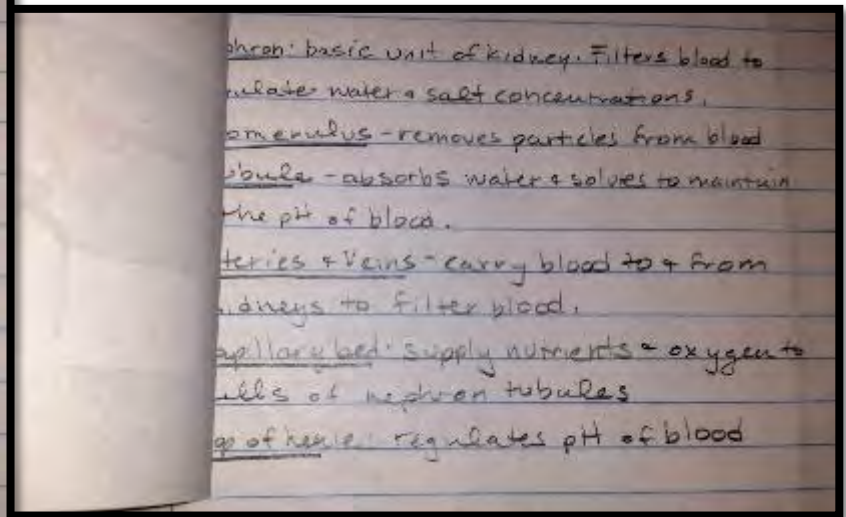 phron: basic unit of kidney. Filters blood to
ulate water & salt concentrations.
omerulus - removes particles from blood
ubule - absorbs water & solutes to maintain
the pH of blood.
teries & Veins - carry blood to & from
idneys to filter blood.
apillary bed: supply nutrients & oxygen to
ells of nephron tubules
op of henle: regulates pH of blood